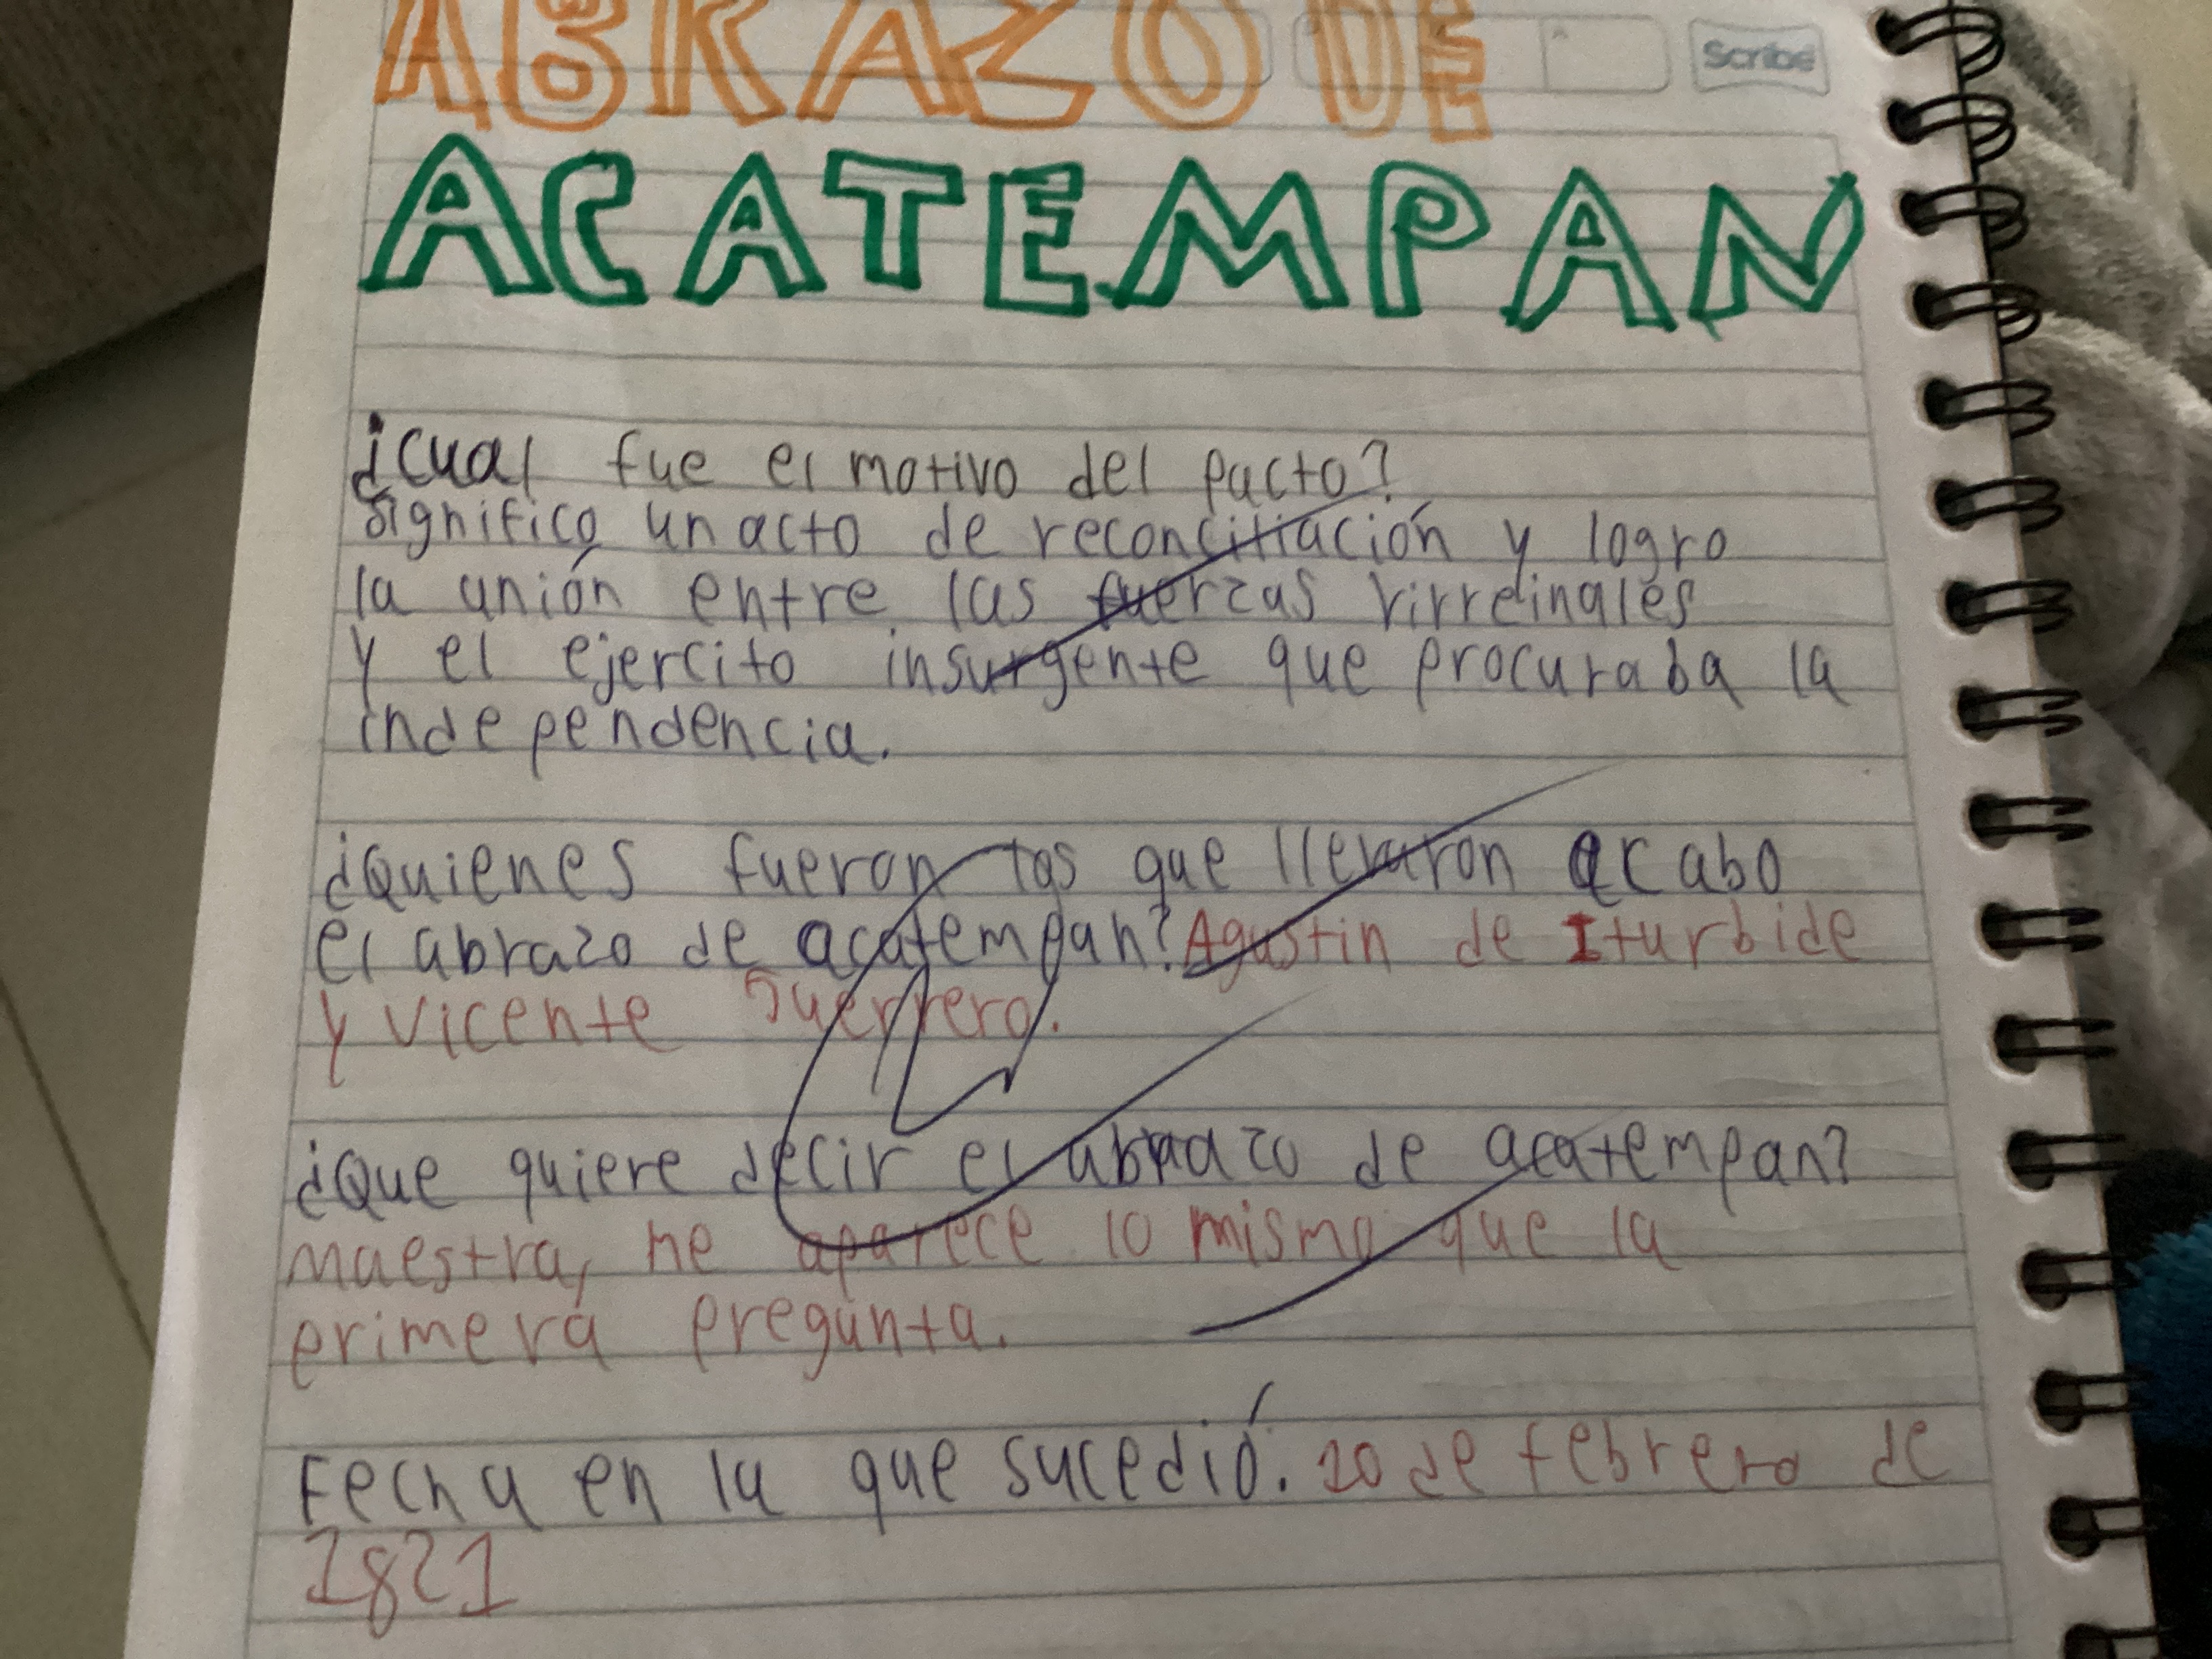 ABRAZO DE
Scribe
ACATEMPAN
¿cual fue el motivo del pacto?
significo un acto de reconciliación y logro
la unión entre las fuerzas virreinales
y el ejercito insurgente que procuraba la
independencia.
¿Quienes fueron los que llevaron acabo
el abrazo de acatempan? Agustin de Iturbide
y vicente guerrero.
¿Que quiere decir el abrazo de acatempan?
maestra, me aparece lo mismo que la
primera pregunta.
Fecha en la que sucedió. 10 de febrero de
1821